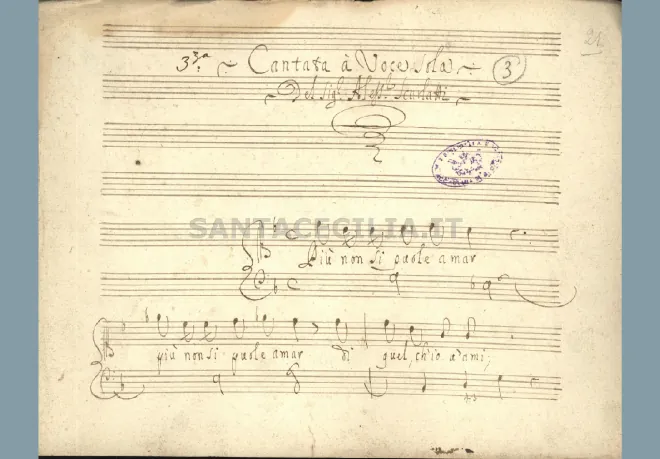 21
3.za Cantata à Voce sola 3
Del Sigr. Alessro. Scarlatti
SANTACECILIA.IT
Più non si puole amar
più non si puole amar di quel, ch'io v'ami;